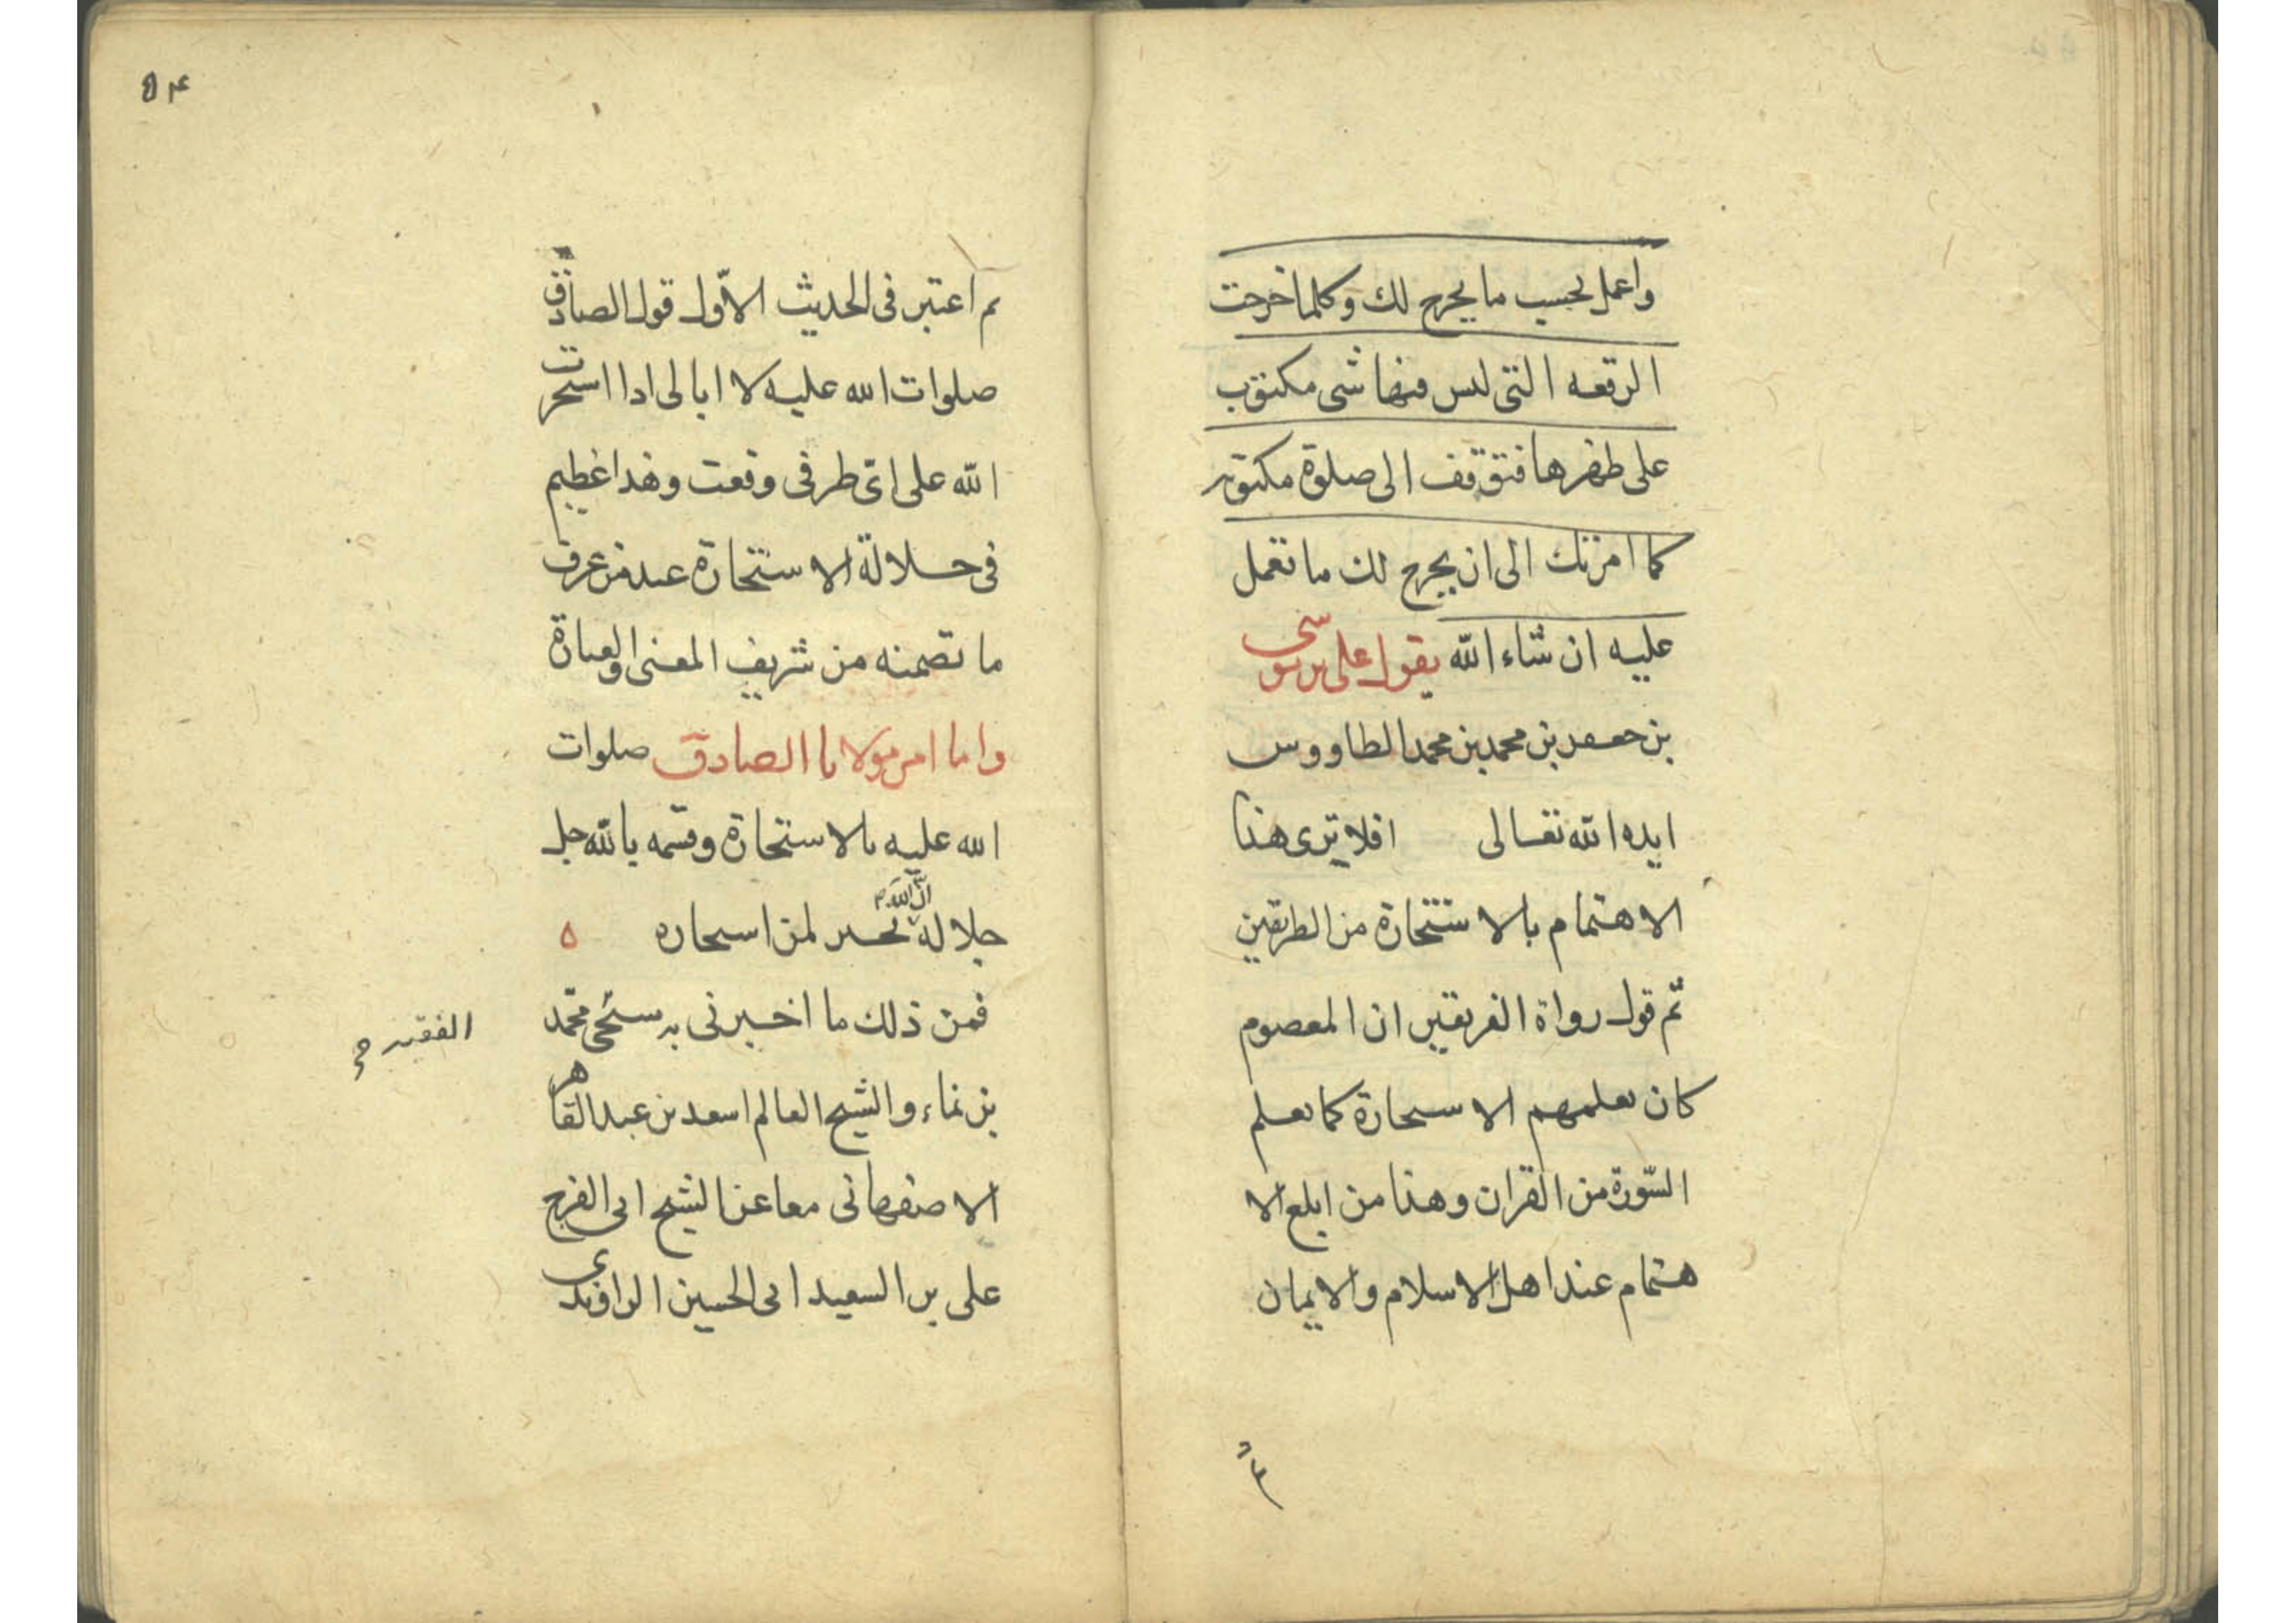 واعمل بحسب ما يخرج لك وكلما خرجت
الرقعه التى ليس فيها شى مكتوب
على ظهرها فتوقف الى صلوة مكتوبة
كما امرتك الى ان يخرج لك ما تعمل
عليه ان شاء الله يقول على بن موسى
بن جعفر بن محمد بن محمد الطاووس
ايده الله تعالى افلا ترى هذا
الاهتمام بالاستخارة من الطريقين
ثم قول رواة الفريقين ان المعصوم
كان يعلمهم الاستخارة كما يعلم
السّورة من القران وهذا من ابلع الا
هتمام عند اهل الاسلام والايمان
ثم
۵۴
ثم اعتبر فى الحديث الاوّل قول الصادق
صلوات الله عليه لا ابالى اذا استخرت
الله على اىّ طرفى وقعت وهذا عظيم
فى جلالة الاستخارة عند من عرف
ما تضمنه من شريف المعنى والعبارة
واما امر مولانا الصادق صلوات
الله عليه بالاستخارة وقسمه بالله جل
جلاله انّ الله يخير لمن استخاره ه
فمن ذلك ما اخبرنى به شيخى محمّد
الفقيه
بن نماء والشيخ العالم اسعد بن عبد القاهر
الاصفهانى معا عن الشيخ ابى الفرج
على بن السعيد ابى الحسين الراوندى